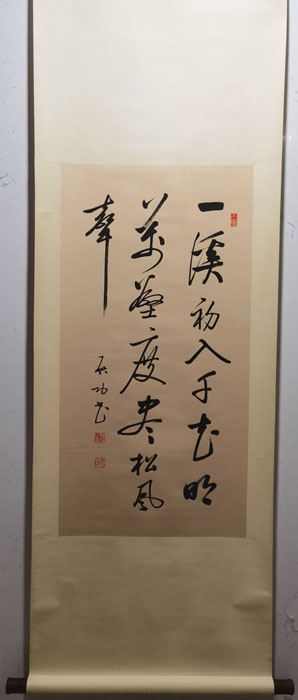 一溪初入千花明
萬壑度盡松風
聲
啟功書